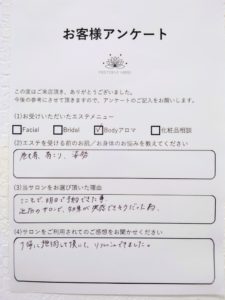 お客様アンケート
この度はご来店頂き、ありがとうございました。
今後の参考にさせて頂きますので、アンケートのご記入をお願いします。
(1)お受けいただいたエステメニュー
Facial Bridal Bodyアロマ 化粧品相談
(2)エステを受ける前のお肌／お身体のお悩みを教えてください
肩こり、姿勢
(3)当サロンをお選び頂いた理由
明日で予約できた事、
近所のサロンで、効果が実感できそうだった為
(4)サロンをご利用されてのご感想をお聞かせください
丁寧に説明して頂いて、リフレッシュできました。